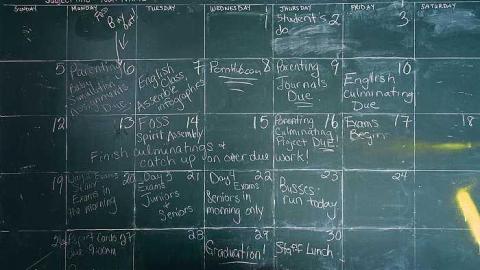 SUNDAY MONDAY TUESDAY WEDNESDAY THURSDAY FRIDAY SATURDAY
1
Students 2
do
3
5
Parenting 6
Baby
Simulation
Assignments
Due
English 7
Class,
Assemble
infographics
8
Parenting 9
Journals
Due
10
English
Culminating
Due
12
13
FOSS 14
Spirit Assembly
15
Parenting 16
Culminating
Project Due!
Exams 17
Begin
18
Finish culminatings &
catch up on overdue work!
19
Day 2 Exams 20
Exams in
the morning
Day 3 21
Exams
Juniors
&
Seniors
Day 4 22
Exams
Seniors in
morning only
Busses 23
run today
24
Report Cards 27
due 9:00am
28
29
Graduation!
30
Staff Lunch